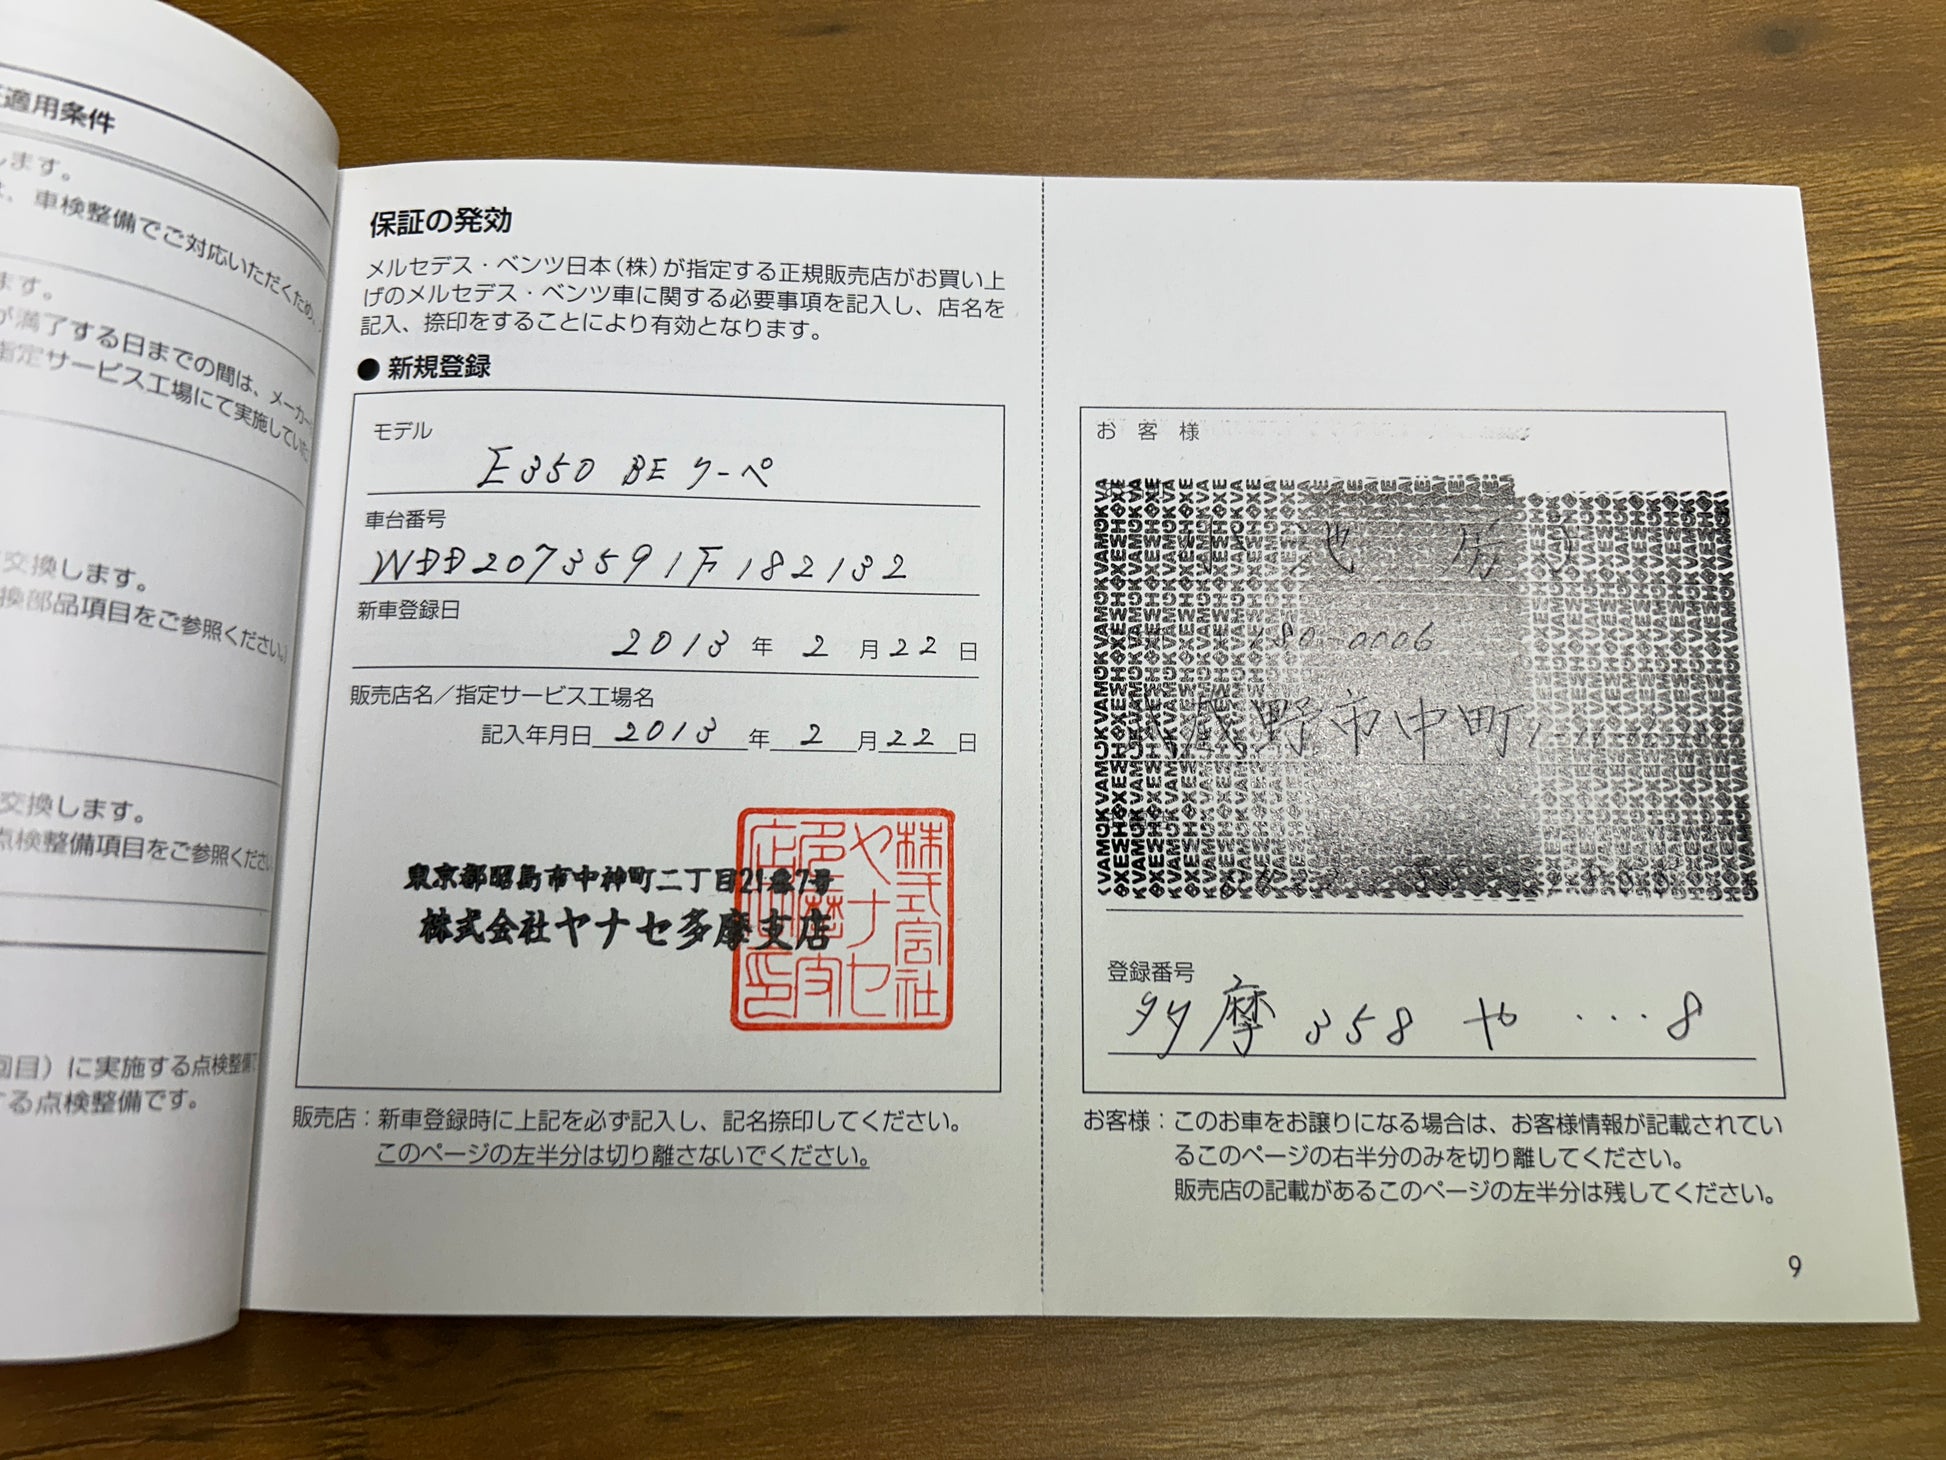 適用条件
します。
車検整備でご対応いただくため、
ます。
が満了する日までの間は、メーカー
指定サービス工場にて実施していた
交換します。
換部品項目をご参照ください。)
交換します。
点検整備項目をご参照くださ
回目)に実施する点検整備で
する点検整備です。
保証の発効
メルセデス・ベンツ日本(株)が指定する正規販売店がお買い上
げのメルセデス・ベンツ車に関する必要事項を記入し、店名を
記入、捺印をすることにより有効となります。
●新規登録
モデル
E350 BE クーペ
車台番号
WDD2073591F182132
新車登録日
2013 年 2 月 22 日
販売店名/指定サービス工場名
記入年月日 2013 年 2 月 22 日
東京都昭島市中神町二丁目21番7号
株式会社ヤナセ多摩支店
株式会社
ヤナセ
多摩支
店
印
販売店:新車登録時に上記を必ず記入し、記名捺印してください。
このページの左半分は切り離さないでください。
お客様
180-0006
野市中町
登録番号
多摩 358 や ・・・8
お客様:このお車をお譲りになる場合は、お客様情報が記載されてい
るこのページの右半分のみを切り離してください。
販売店の記載があるこのページの左半分は残してください。
9